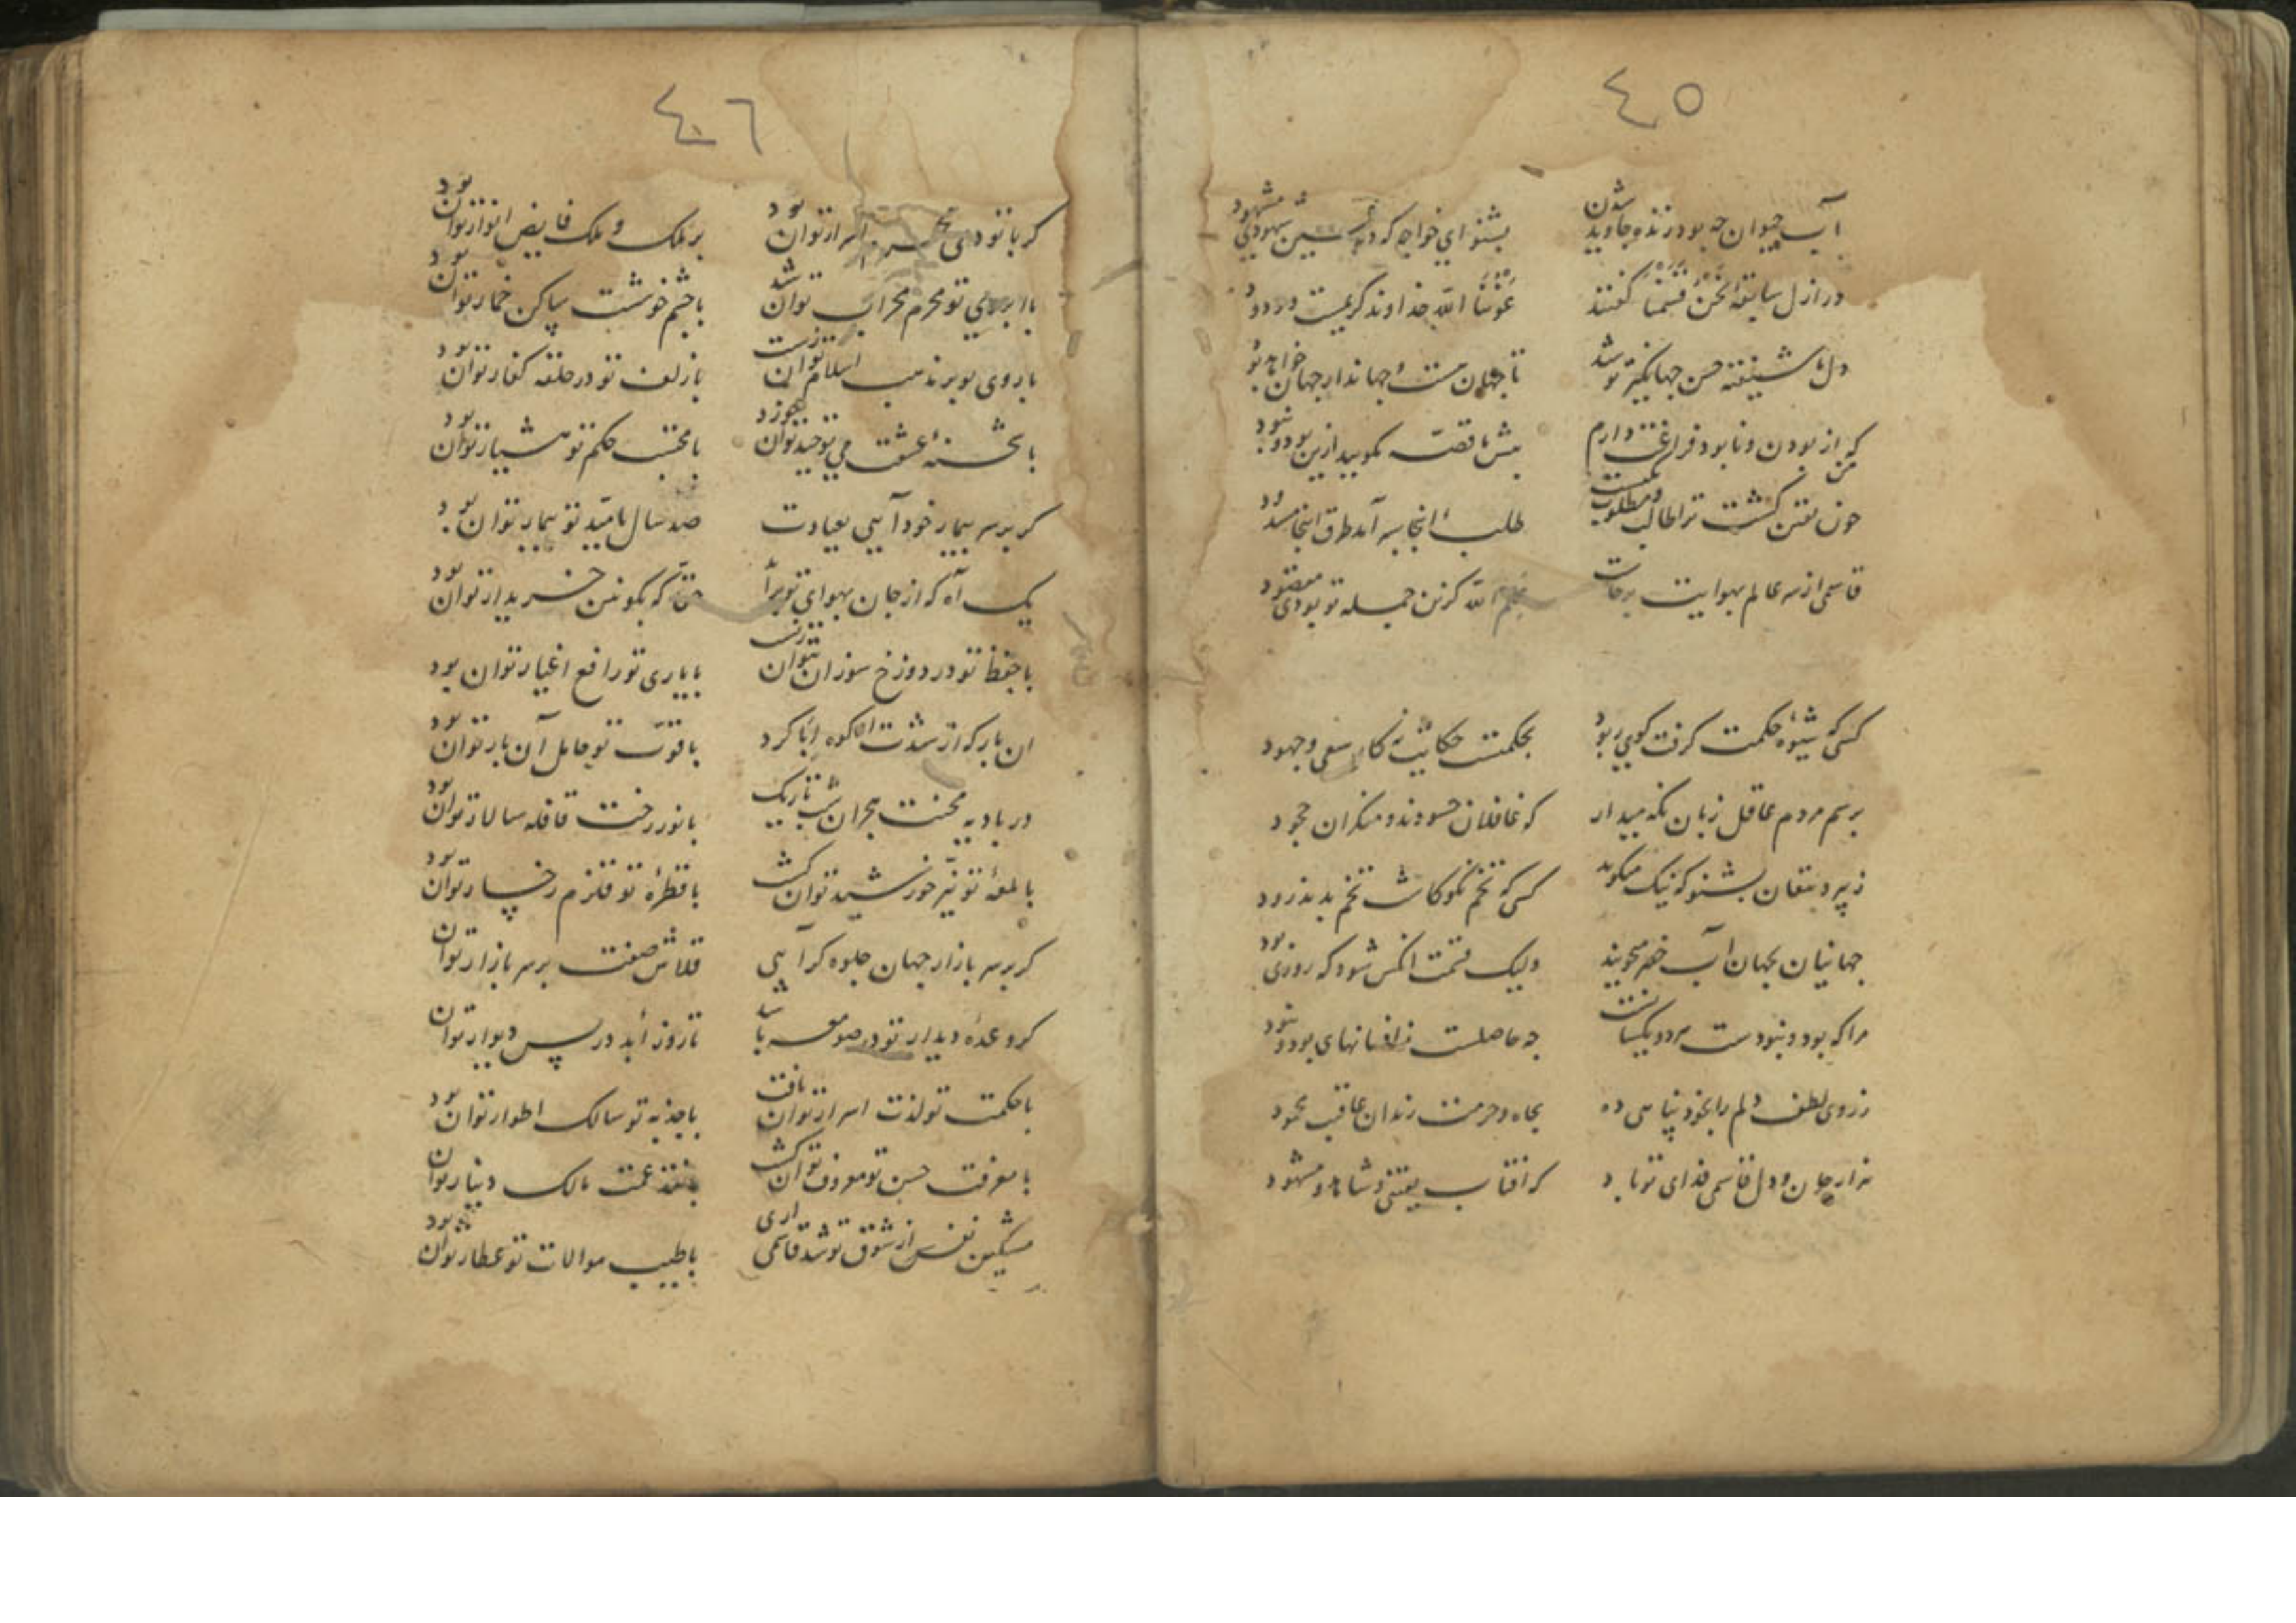 ٤٥
آب حیوان چه بود زنده جاوید شدن بشنو ای خواجه که در شهودی مشهود
در ازل سابقه نحن قسمنا گفتند غوثنا الله خداوند کریمست و ودود
دل ما شیفته حسن جهانگیر تو شد تا جهان هست و جهاندار جهان خواهد بود
من که از بودن و نابود فراغت دارم پیش ما قصه مگویید ازین بود و نبود
چون یقین گشت ترا طالب و مطلوب یکیست طلب اینجا بسر آمد طرق اینجا مسدود
قاسمی از سر عالم بهوایت برخاست علم الله کزین جمله تو بودی مقصود
کسی که شیوه حکمت گرفت گوی ربود بحکمتست حکایت نه کار سعی و جهود
برسم مردم عاقل زبان نگه میدار که غافلان حسودند و منکران جحود
ز پیر دهقان بشنو که نیک میگوید کسی که تخم نکو کاشت تخم بد ندرود
جهانیان بجهان آب خضر میجویند ولیک قسمت آنکس شود که روزی بود
مرا که بود و نبودست هر دو یکسانست چه حاصلست ز افسانهای بود و نبود
ز روی لطف دلم را بخود پناهی ده بجاه و حرمت رندان عاقبت محمود
هزار جان و دل قاسمی فدای تو باد که آفتاب یقینی و شاهد و مشهود
٤٦
گر با تو دمی محرم اسرار توان بود بر ملک و ملک فایض انوار توان بود
با ابروی تو محرم محراب توان شد با چشم خوشت ساکن خمار توان بود
با روی تو بر مذهب اسلام توان زیست با زلف تو در حلقه کفار توان بود
با شحنه عشقت می توحید توان خورد با محتسب حکم تو هشیار توان بود
گر بر سر بیمار خود آیی بعیادت صد سال بامید تو بیمار توان بود
یک آه که از جان بهوای تو برآید حقا که بکونین خریدار توان بود
با حفظ تو در دوزخ سوزان بتوان زیست با یاری تو رافع اغیار توان بود
آن بار که از شدت آن کوه ابا کرد با قوت تو حامل آن بار توان بود
در بادیه محنت هجران شب تاریک با نور رخت قافله سالار توان بود
با لمعه تو نیر خورشید توان گشت با قطره تو قلزم زخار توان بود
گر بر سر بازار جهان جلوه گر آیی قلاش صفت بر سر بازار توان
گر وعده دیدار تو در صومعه باشد تا روز ابد در پس دیوار توان
با حکمت تو لذت اسرار توان یافت با جذبه تو سالک اطوار توان بود
با معرفت حسن تو معروف توان گشت با نقد غمت مالک دینار توان
مشکین نفس از شوق تو شد قاسمی آری با طیب موالات تو عطار توان بود